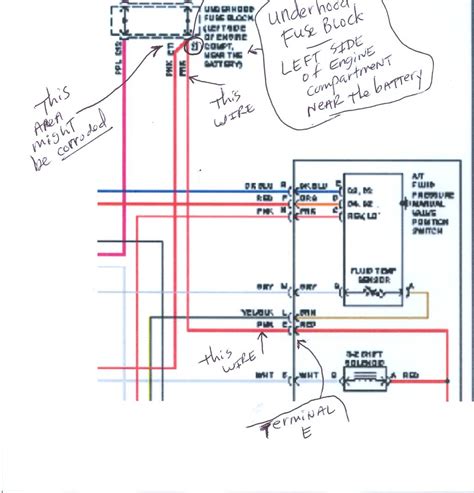 UNDERHOOD
FUSE BLOCK
(LEFT SIDE
OF ENGINE
COMPT,
NEAR THE
BATTERY)
Underhood
Fuse Block
LEFT SIDE
of Engine
compartment
NEAR the battery
PPL
PNK
PNK
This
AREA
might
be corroded
This
WIRE
DK BLU
DK BLU
RED
ORG
PNK
PNK
A/T
FLUID
PRESSURE
MANUAL
VALVE
POSITION
SWITCH
GRY
GRY
FLUID TEMP
SENSOR
YEL/BLK L
BRN
PNK E
RED
This
WIRE
3-2 SHIFT
SOLENOID
WHT
WHT
A RED
Terminal
E